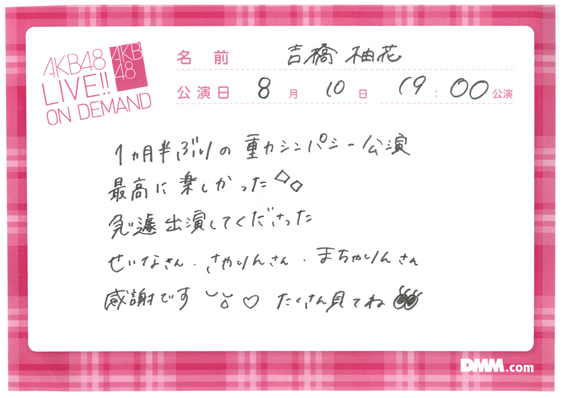 AKB48
LIVE!!
ON DEMAND
AKB
48
名前 吉橋柚花
公演日 8月10日 19:00公演
1ヵ月半ぶりの重力シンパシー公演
最高に楽しかった
急遽出演してくださった
せいなさん、さやりんさん、まちゃりんさん
感謝です♡ たくさん見てね
DMM.com